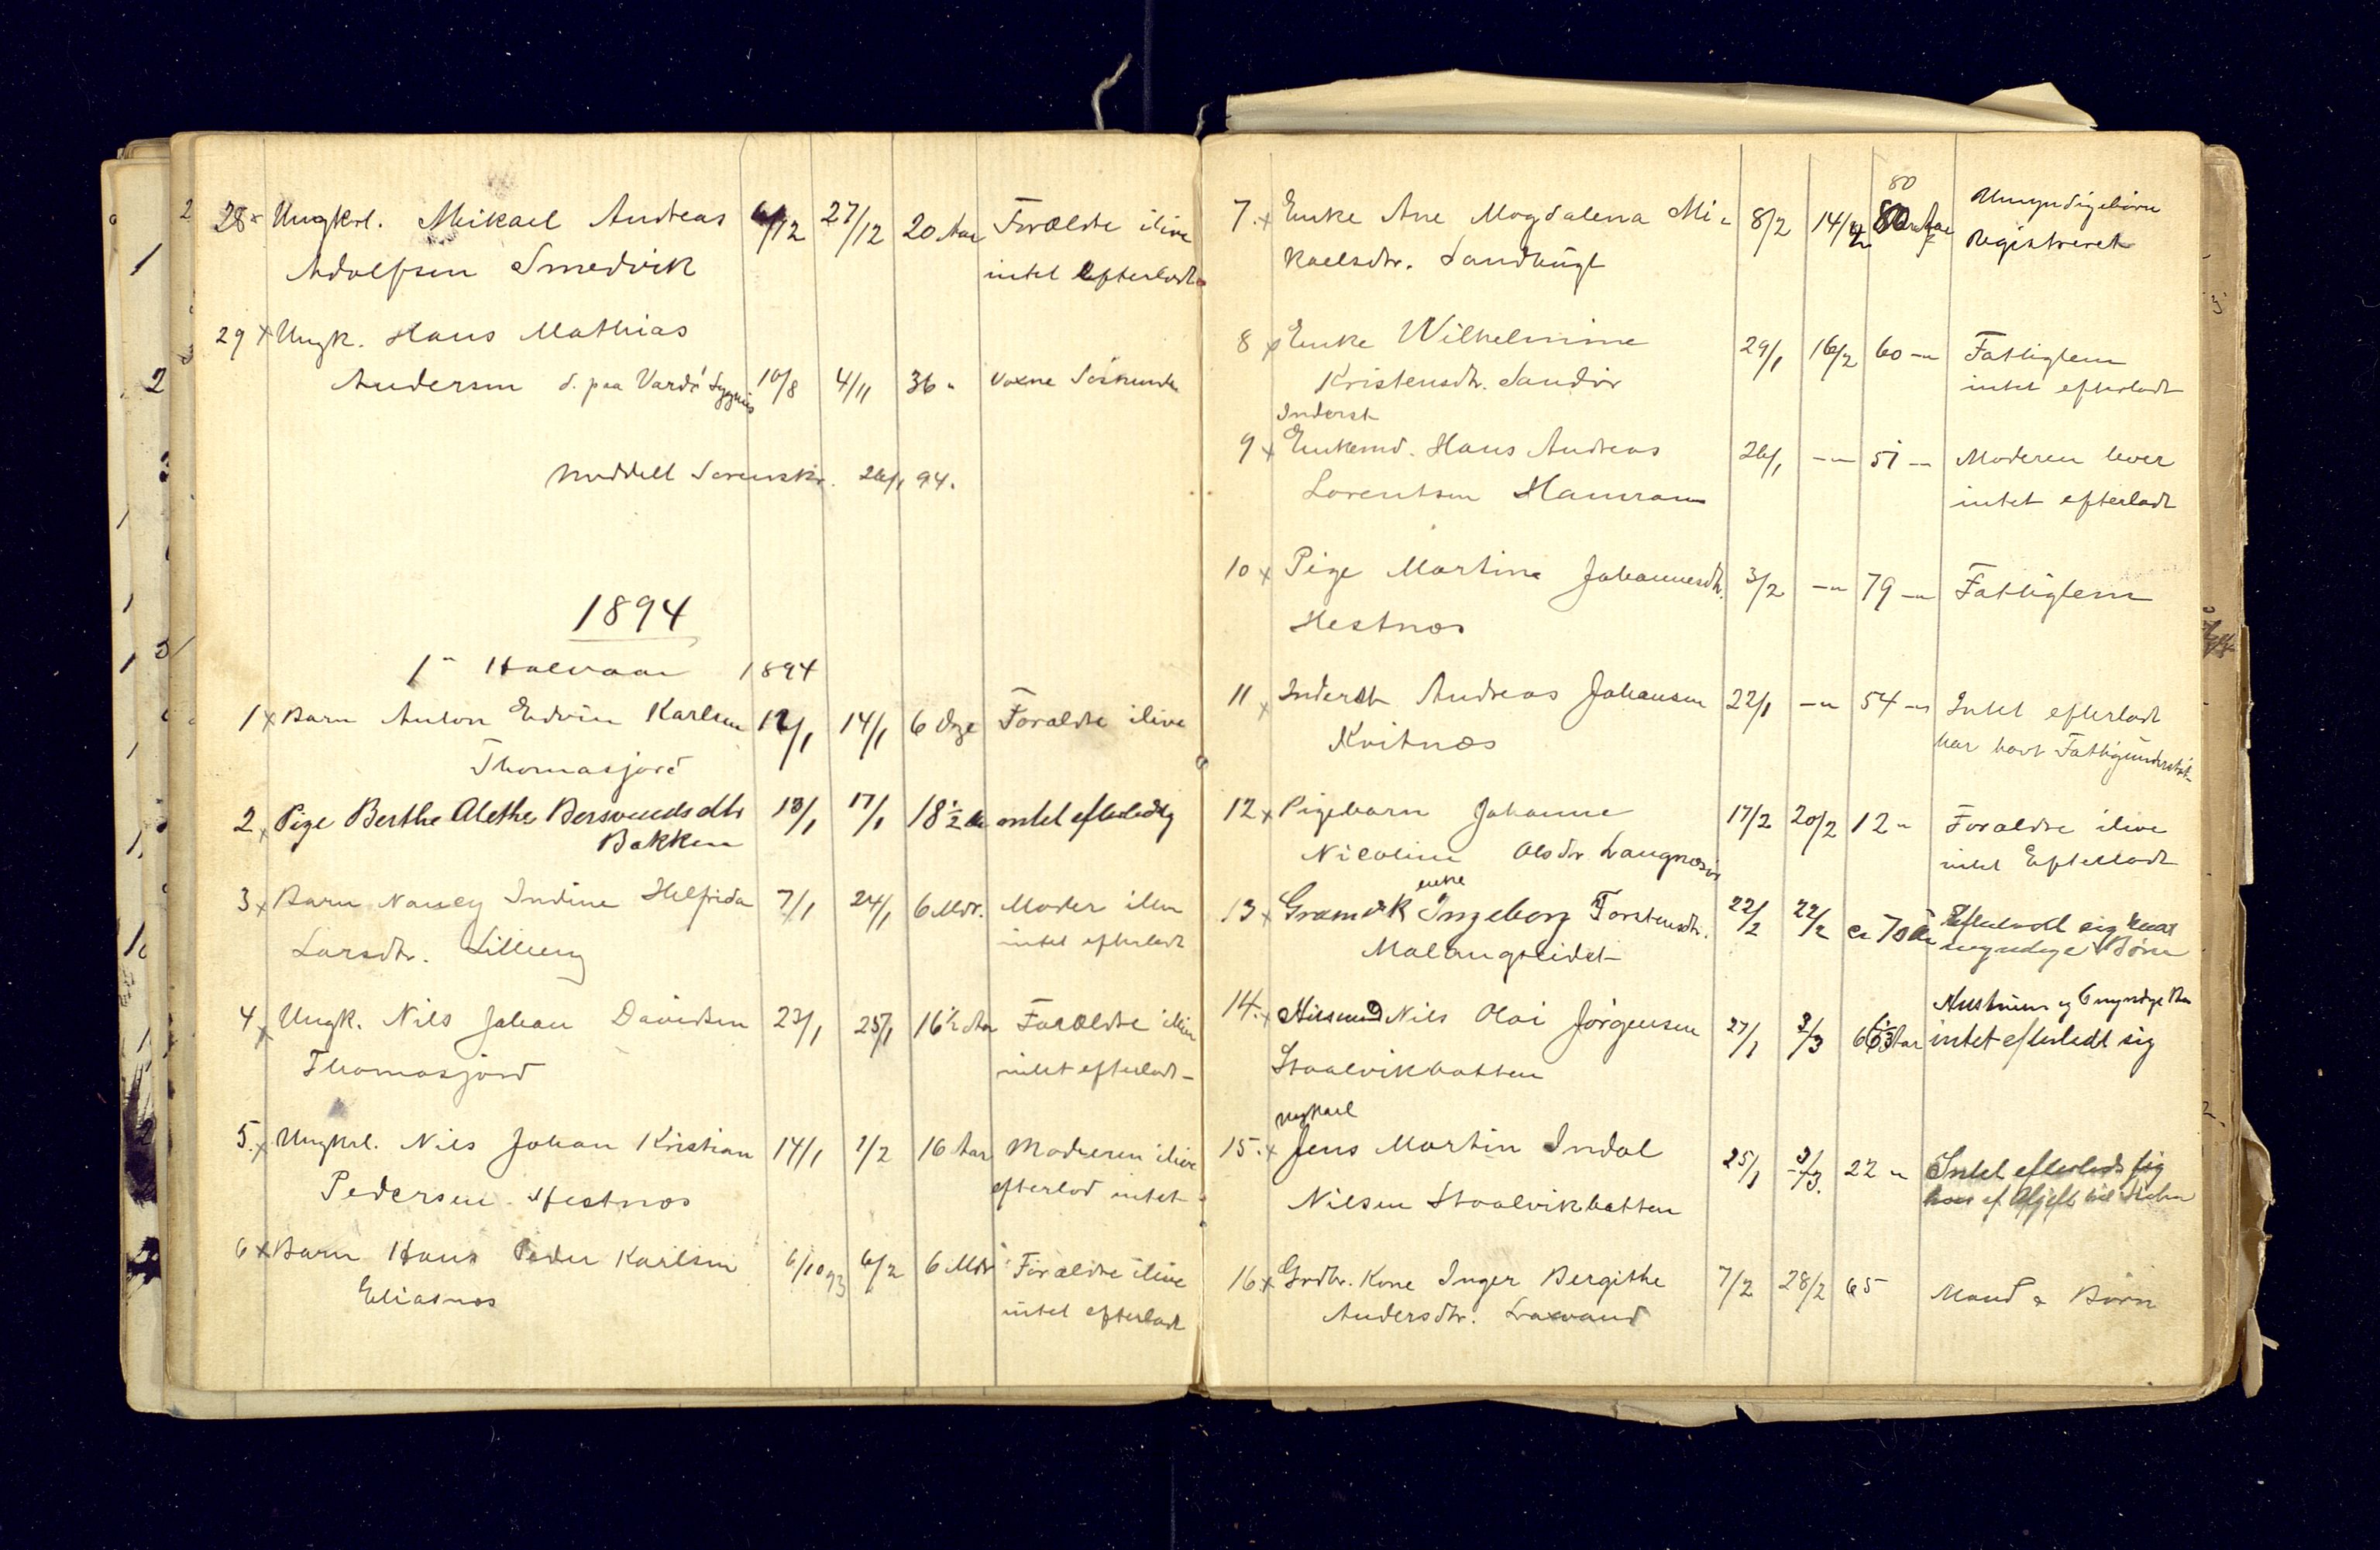 28 x Ungkrl. Mikael Andreas 6/12 27/12 20 Aar Forældre ilive
Adolfsen Smedvik intet efterladt
29 x Ungk. Hans Mathias
Andersen d. paa Vardö Sygehus 10/8 4/11 36 " voxne Söskende
meddelt Sorenskr. 26/1 94.
1894
1ste Halvaar 1894
1 x Barn Anton Edvin Karlsen 12/1 14/1 6 Dage Forældre ilive
Thomasjord
2 x Pige Berthe Alethe Bersvendsdtr 13/1 17/1 18 1/2 Aar intet efterladt sig
Bakken
3 x Barn Nancy Indine Helfrida 7/1 24/1 6 Mdr. Moder ilive
Larsdtr. Lilleng intet efterladt
4 x Ungk. Nils Johan Davidsen 23/1 25/1 16 1/2 Aar Forældre ilive
Thomasjord intet efterladt -
5. x Ungkrl. Nils Johan Kristian 14/1 1/2 16 Aar Moderen ilive
Pedersen Hestnæs efterlod intet
6 x Barn Hans Peder Karlsen 6/10 93 6/2 6 Mdr Forældre ilive
Eliasnæs intet efterladt
80
7. x Enke Ane Magdalena Mi- 8/2 14/2 Aar Umyndigebörn
kaelsdtr. Sandbugt Registreret
8 x Enke Wilhelmine 29/1 16/2 60 -"- Fattiglem
Kristensdtr. Sandör intet efterladt
Inderst
9 x Enkemd. Hans Andreas 26/1 -"- 51 -"- Moderen lever
Lorentsen Hamran intet efterladt
10 x Pige Martina Johannesdtr. 3/2 -"- 79 -"- Fattiglem
Hestnæs
11 x Inderst Andreas Johansen 22/1 -"- 54 -"- Intet efterladt
Kvitnæs har havt Fattigunderstöt-
12 x Pigebarn Johanne 17/2 20/2 12 " Forældre ilive
Nicoline Olsdtr Langnæsör intet Efterladt
enke
13 x Ingeborg Torstensdtr. 22/2 22/2 ca 70 Aar Efterladt sig
Malangseidet myndige Börn
Hustruen og 6 myndige Börn
14. x Husmd Nils Olai Jörgensen 27/1 2/3 63 Aar intet efterladt sig
Staalvikbatten
ungkarl
15. x Jens Martin Indal 25/1 2/3. 22 " Intet efterladt sig
Nilsen Staalvikbatten
16 x Grdbr. Kone Inger Bergithe 7/2 28/2 65 Mand & Börn
Andersdtr. Laxvand